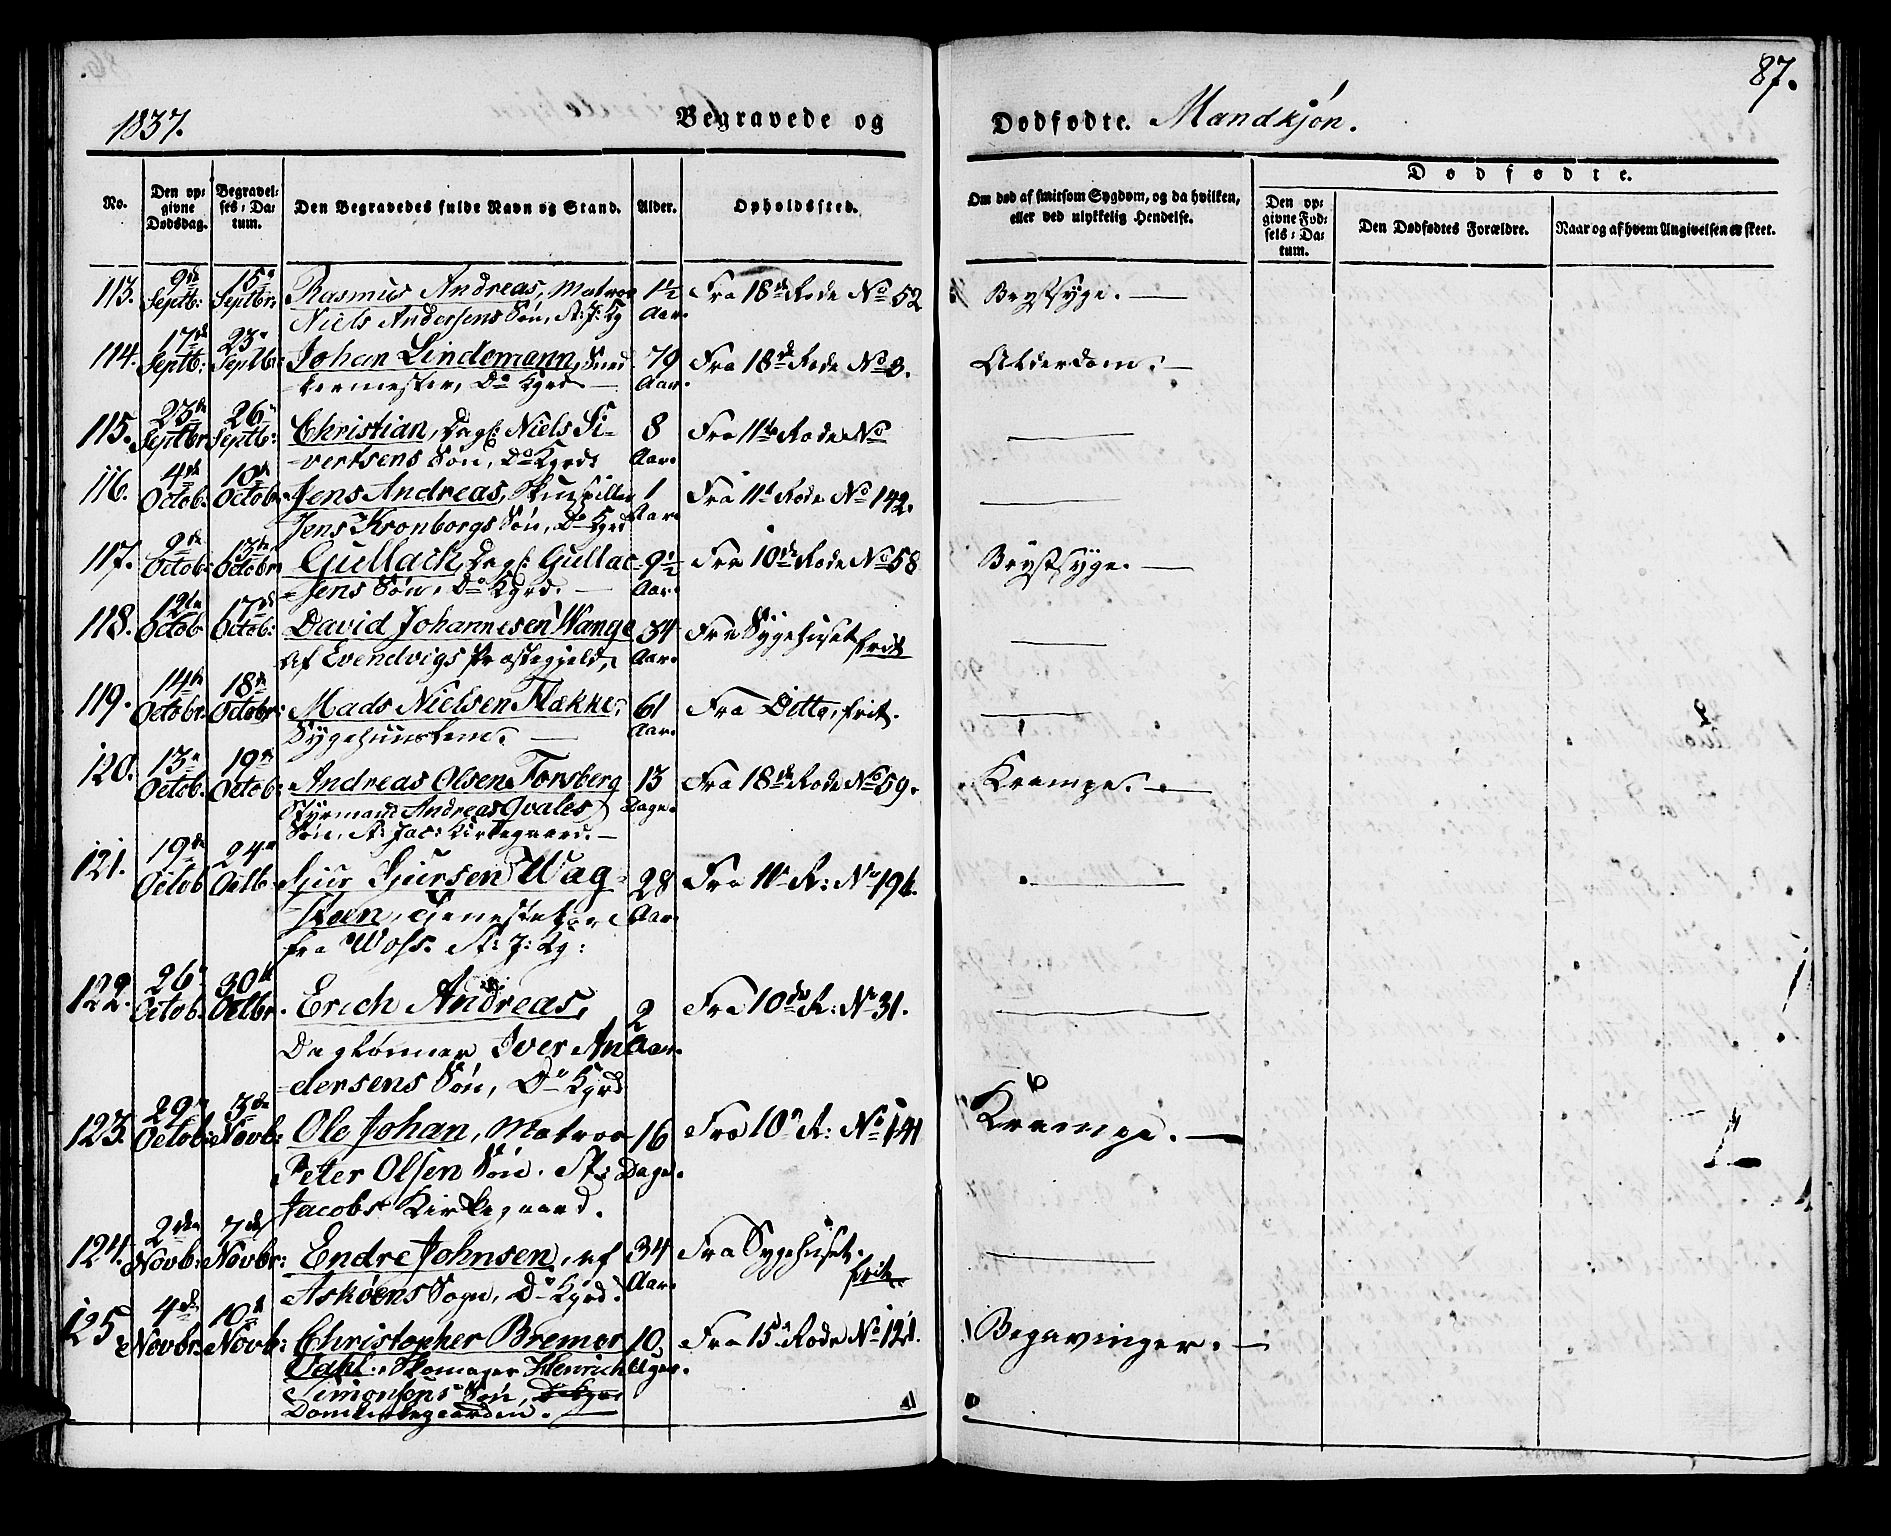 87.
1837.
Begravede og
Dødfødte. Mandkjøn.
No.
Den op-
givne
Dødsdag.
Begravel-
ses-Da-
tum.
Den Begravedes fulde Navn og Stand.
Alder.
Opholdssted.
Om død af smitsom Sygdom, og da hvilken,
eller ved ulykkelig Hendelse.
Dødfødte.
Den op-
givne Fød-
sels-Da-
tum.
Den Dødfødtes Forældre.
Naar og af hvem Angivelsen er skeet.
113. 9de Septb: 15de Septbr: Rasmus Andreas, Matros 1½ Aar. Fra 18de Rode No 52 Brystsyge.
Niels Andersens Søn, St: J: Kg
114. 17de Septb: 23de Septb: Johan Lindemann, Sned- 79 Aar. Fra 18de Rode No 3. Alderdom.
kermester, Do Kgrd
115. 23de Septbr 26 Septb: Christian, Dagl: Niels Si- 8 Aar. Fra 11te Rode No
vertsens Søn, Do Kgrd:
116. 4de Octob: 10de Octob: Jens Andreas, Skuespiller 1 Aar. Fra 11te Rode No 142.
Jens Kronborgs Søn, Do Kgrd
117. 9de Octob: 13de Octobr Gullack, Dagl: Gullac- 9½ Aar. Fra 10de Rode No 58 Brystsyge.
sens Søn, Do Kgrd.
118. 12te Octob 17de Octob: David Johannesen Wange 34 Aar. Fra Sygehuset frit
af Evendvigs Præstegjeld,
119. 14de Octobr. 18de Octobr: Mads Nielsen Flække, 61 Aar. Fra Ditto, frit.
Sygehuuslem.
120. 13de Octob. 19de Octob: Andreas Olsen Forsberg 13 Dage. Fra 18de Rode No 59. Krampe.
Styrmand Andreas Qvales
Søn, St: Jac: Kirkegaard.
121. 19de Octob 24de Octb. Sjur Sjursen Wag- 28 Aar. Fra 11te R: No 196.
, Tjenestekar
fra Woss. St: J: Kg:
122. 26 Octob. 30te Octbr. Erich Andreas, 2 Aar. Fra 10de R: No 31.
Daglønner Iver An-
dersens Søn, Do Kgrd
123. 29de Octob: 3de Novb: Ole Johan, Matros 16 Dage. Fra 10de R: No 141 Krampe.
Peter Olsen Søn. St:
Jacobs Kirkegaard.
124. 2den Novb: 7de Novbr: Endre Johnsen, af 34 Aar. Fra Sygehuset. frit.
Askøens Sogn, Do Kgrd.
125. 4de Novbr. 10de Novb: Christopher Bremer 10 Uger. Fra 15de Rode No 121. Begavinger.
Dahl, Skomager Henrich
Simonsens Søn, Do Kgrd
Domkirkegaarden.